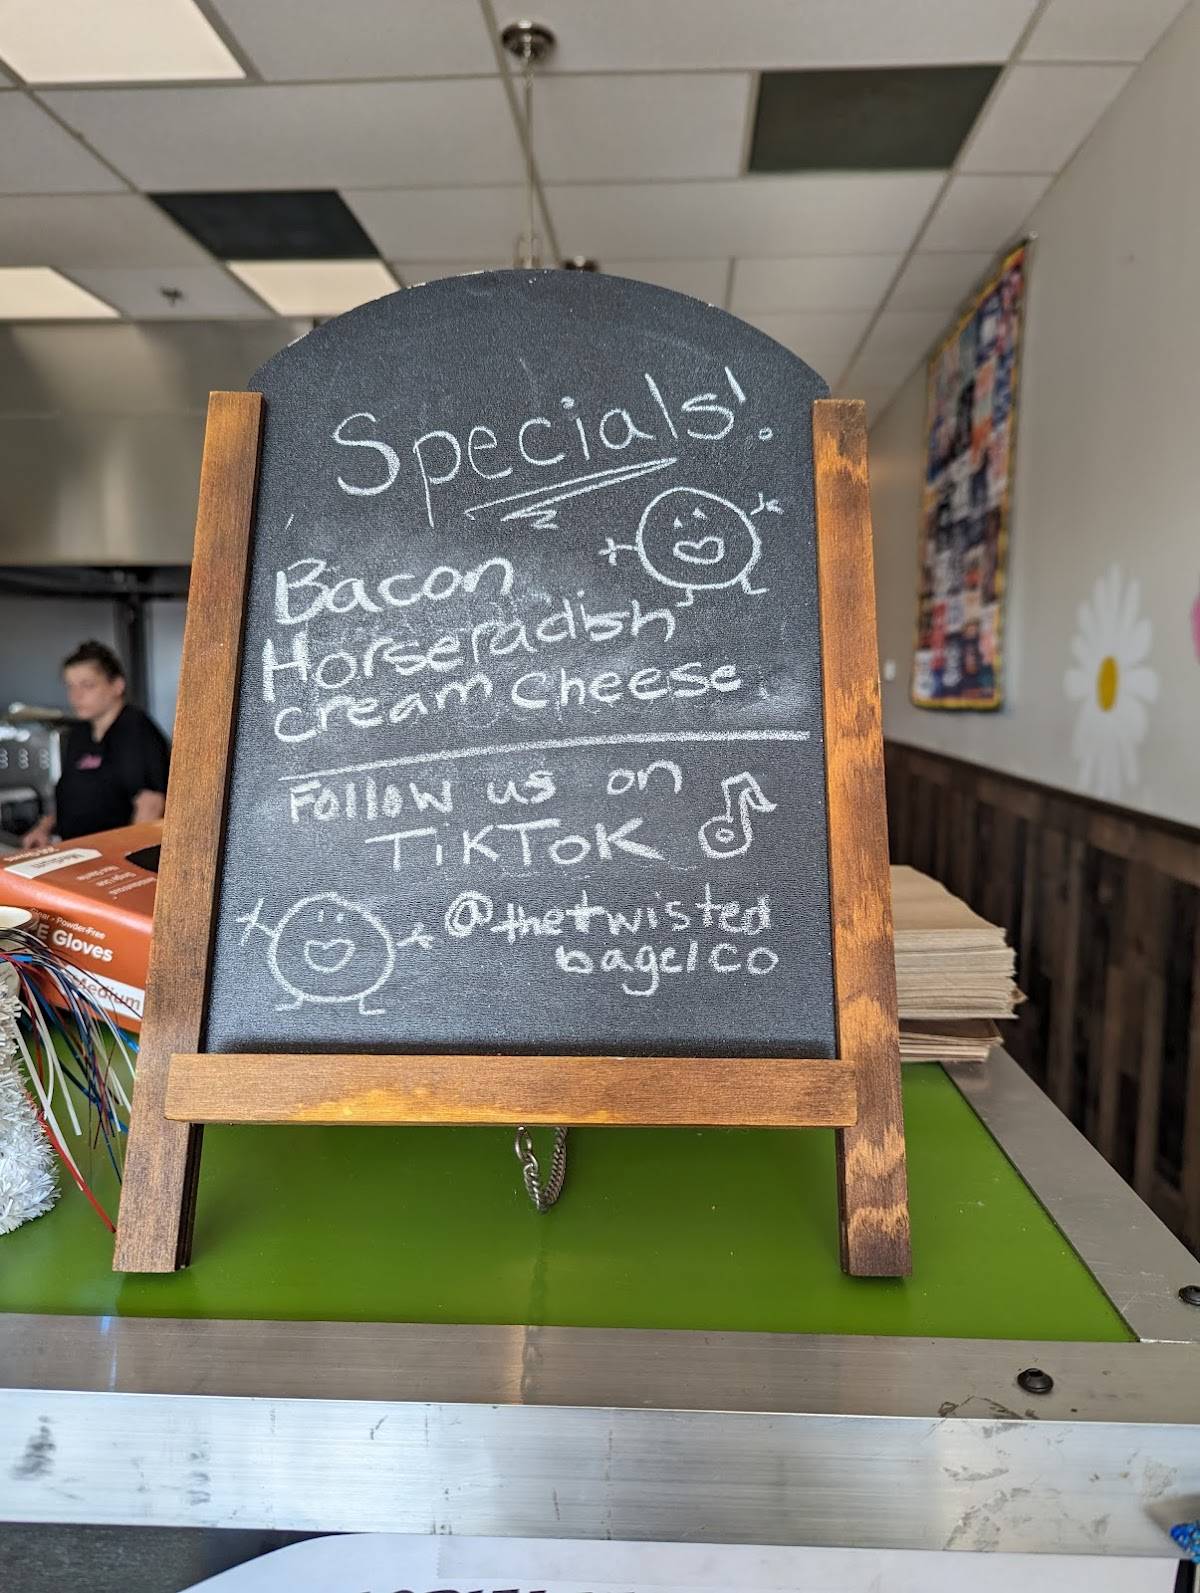 Specials!
Bacon
Horseradish
cream cheese
Follow us on
TiKToK
@thetwisted
bagelco
Powder-Free
E Gloves
Medium